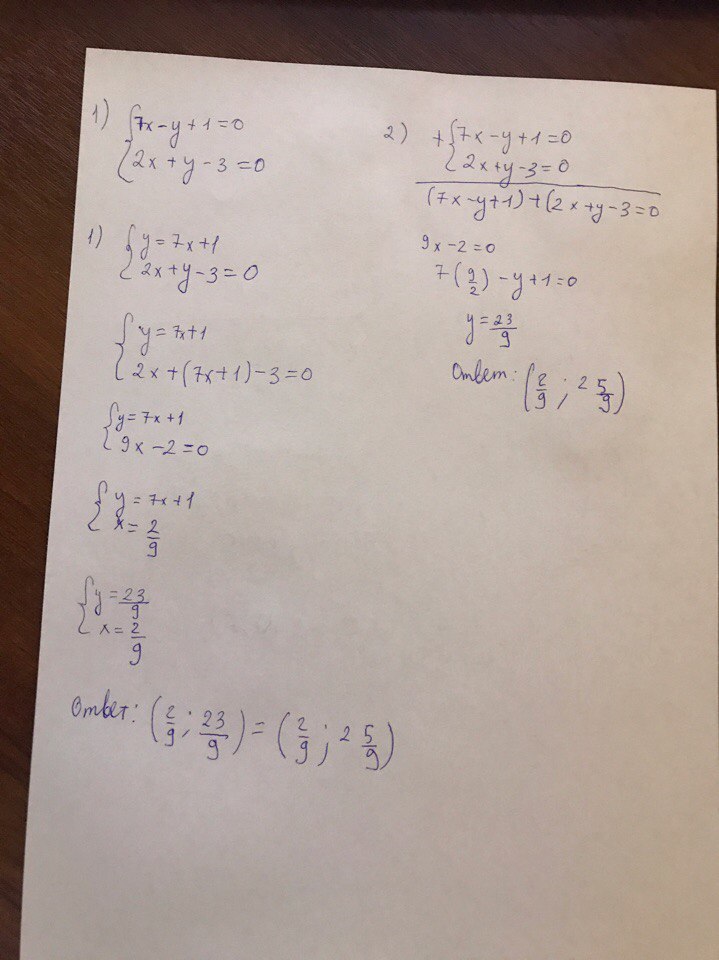 1) {7x-y+1=0
2x+y-3=0
1) {y=7x+1
2x+y-3=0
{y=7x+1
2x+(7x+1)-3=0
{y=7x+1
9x-2=0
{y=7x+1
x=2/9
{y=23/9
x=2/9
Ответ: (2/9; 23/9) = (2/9; 2 5/9)
2) +{7x-y+1=0
2x+y-3=0
(7x-y+1)+(2x+y-3=0
9x-2=0
7(9/2)-y+1=0
y=23/9
Ответ: (2/9; 2 5/9)